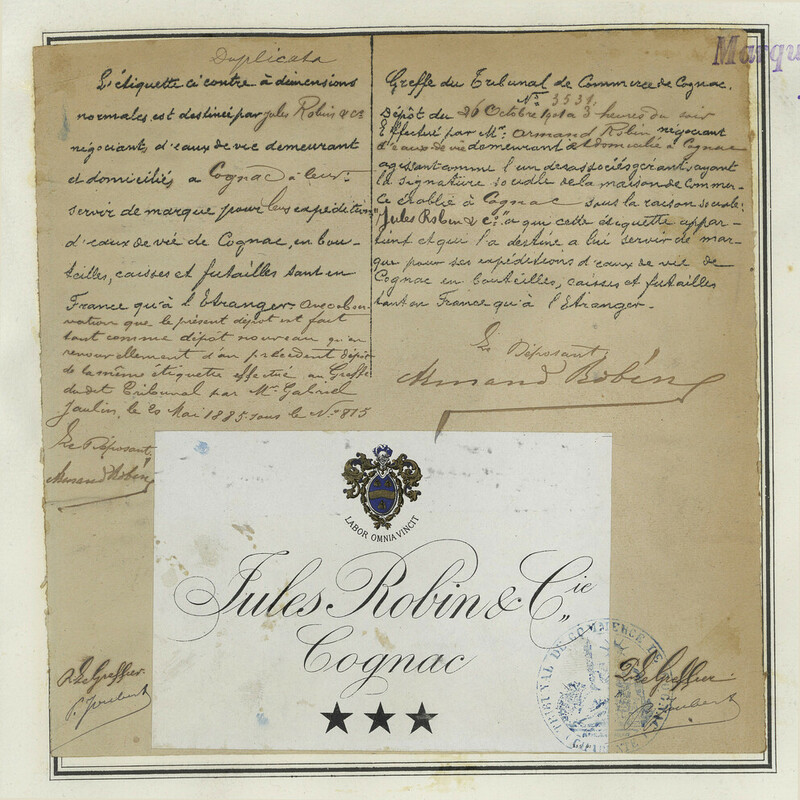 Duplicata
L'étiquette ci contre à dimensions
normales est destinée par Jules Robin & Cie
négociants d'eaux de vie demeurant
et domiciliés a Cognac à leur
servir de marque pour leurs expéditions
d'eaux de vie de Cognac, en bou-
teilles, caisses et futailles tant en
France qu'à l'Etranger. avec obser-
vation que le présent dépôt est fait
tant comme dépôt nouveau qu'en
renouvellement d'un précédent dépôt
de la même étiquette effectué au Greffe
du dit Tribunal par Mr. Gabriel
Jaulin, le 20 Mai 1885 sous le No. 815
Le Déposant
Armand Robin
Greffe du Tribunal de Commerce de Cognac.
No. 3531.
Dépôt du 26 Octobre 1901 a 3 heures du soir
Effectué par Mr. Armand Robin, négociant
d'eaux de vie demeurant et domicilié à Cognac
agissant comme l'un des associés gérant, ayant
la signature sociale de la maison de Commer-
ce établie à Cognac sous la raison sociale:
"Jules Robin & Cie" a qui cette étiquette appar-
tient et qui l'a destine a lui servir de mar-
que pour ses expéditions d'eaux de vie de
Cognac en bouteilles, caises et futailles
tant en France qu'à l'Etranger.
Le Déposant
Armand Robin
Marqu
LABOR OMNIA VINCIT
Jules Robin & Cie
Cognac
★★★
P. Le Greffier
P. Joubert
P. Le Greffier
Joubert
TRIBUNAL DE COMMERCE DE